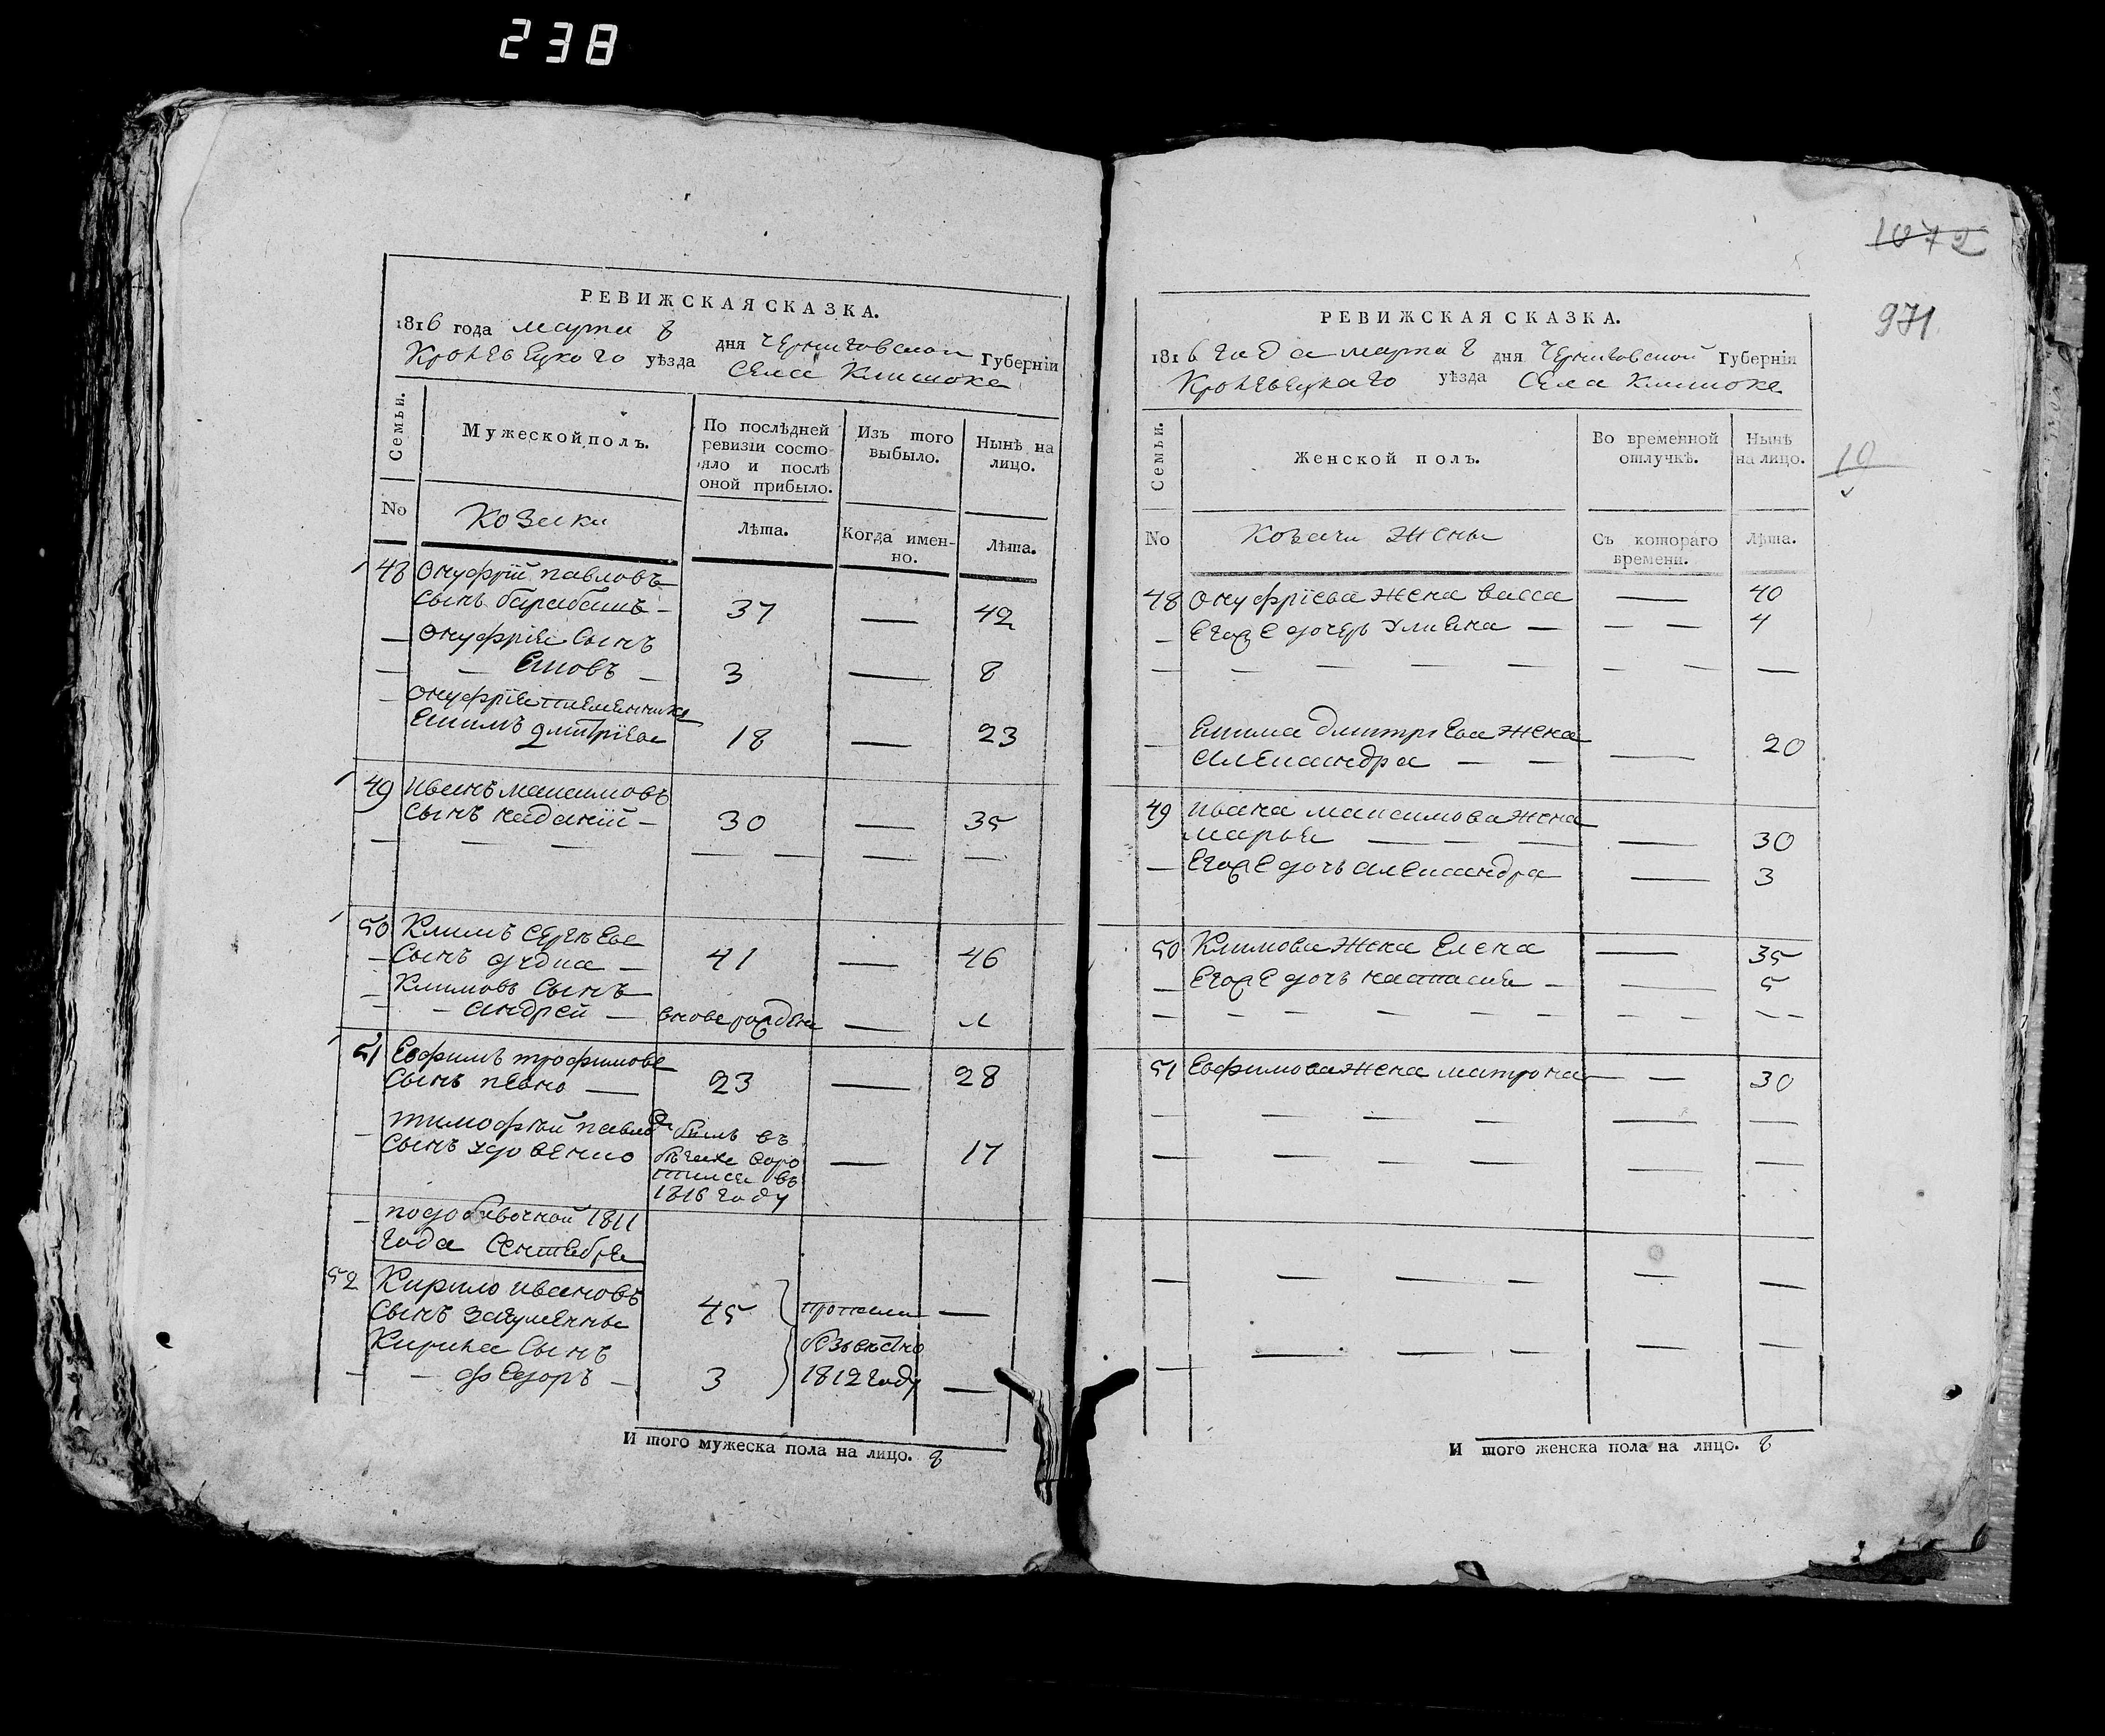 238
РЕВИЖСКАЯ СКАЗКА.
1816 года марта 8 дня Черниговской Губерніи
Кролевецкого уѣзда Села Клишокъ
Семьи.
Мужеской полъ.
По послѣдней ревизіи состояло и послѣ оной прибыло.
Изъ того выбыло.
Нынѣ на лицо.
No
Козаки
Лѣта.
Когда именно.
Лѣта.
48 Онуфрїй павловъ
сынъ барабашъ — 37 — 42
— Онуфрїя сынъ
— — Еѳимовъ — 3 — 8
— онуфрїя племенникъ
Еѳимъ дмитрїевъ 18 — 23
49 Иванъ максимовъ
сынъ — 30 — 35
— — — — — — —
50 Климъ сергѣевъ
— сынъ дудка — 41 — 46
— Климовъ сынъ
— — андрей — вновь рожденъ —
51 Евфимъ трофимовъ
сынъ — 23 — 28
— тимофѣй павловъ
сынъ удовенко былъ въ бѣгахъ воротился въ 1816 году — 17
— подобивочной 1811
года Сентября
52 Кирило ивановъ
сынъ 45 пропали —
Кирила сынъ безвѣстно
— — федоръ — 3 1812 году —
И того мужеска пола на лицо. 8
1072
971
РЕВИЖСКАЯ СКАЗКА.
1816 года марта 8 дня Черниговской Губерніи
Кролевецкаго уѣзда Села Клишокъ
Семьи.
Женской полъ.
Во временной отлучкѣ.
Нынѣ на лицо.
19
No
Козачи жены
Съ котораго времени.
Лѣта.
48 Онуфрїева жена васса — 40
— Егожъ дочерь Улияна — — — 4
— — — — — — — —
— Еѳима дмитрїева жена
Александра — — — 20
49 ивана максимова жена
марья — — — — 30
— Егожъ дочь александра — 3
50 Климова жена Елена — 35
— Егожъ дочь настасия — — 5
— — — — — — — — —
51 Евфимова жена матрона — — 30
— — — — — —
— — — — — —
— — — — — —
— — — — — —
И того женска пола на лицо. 8